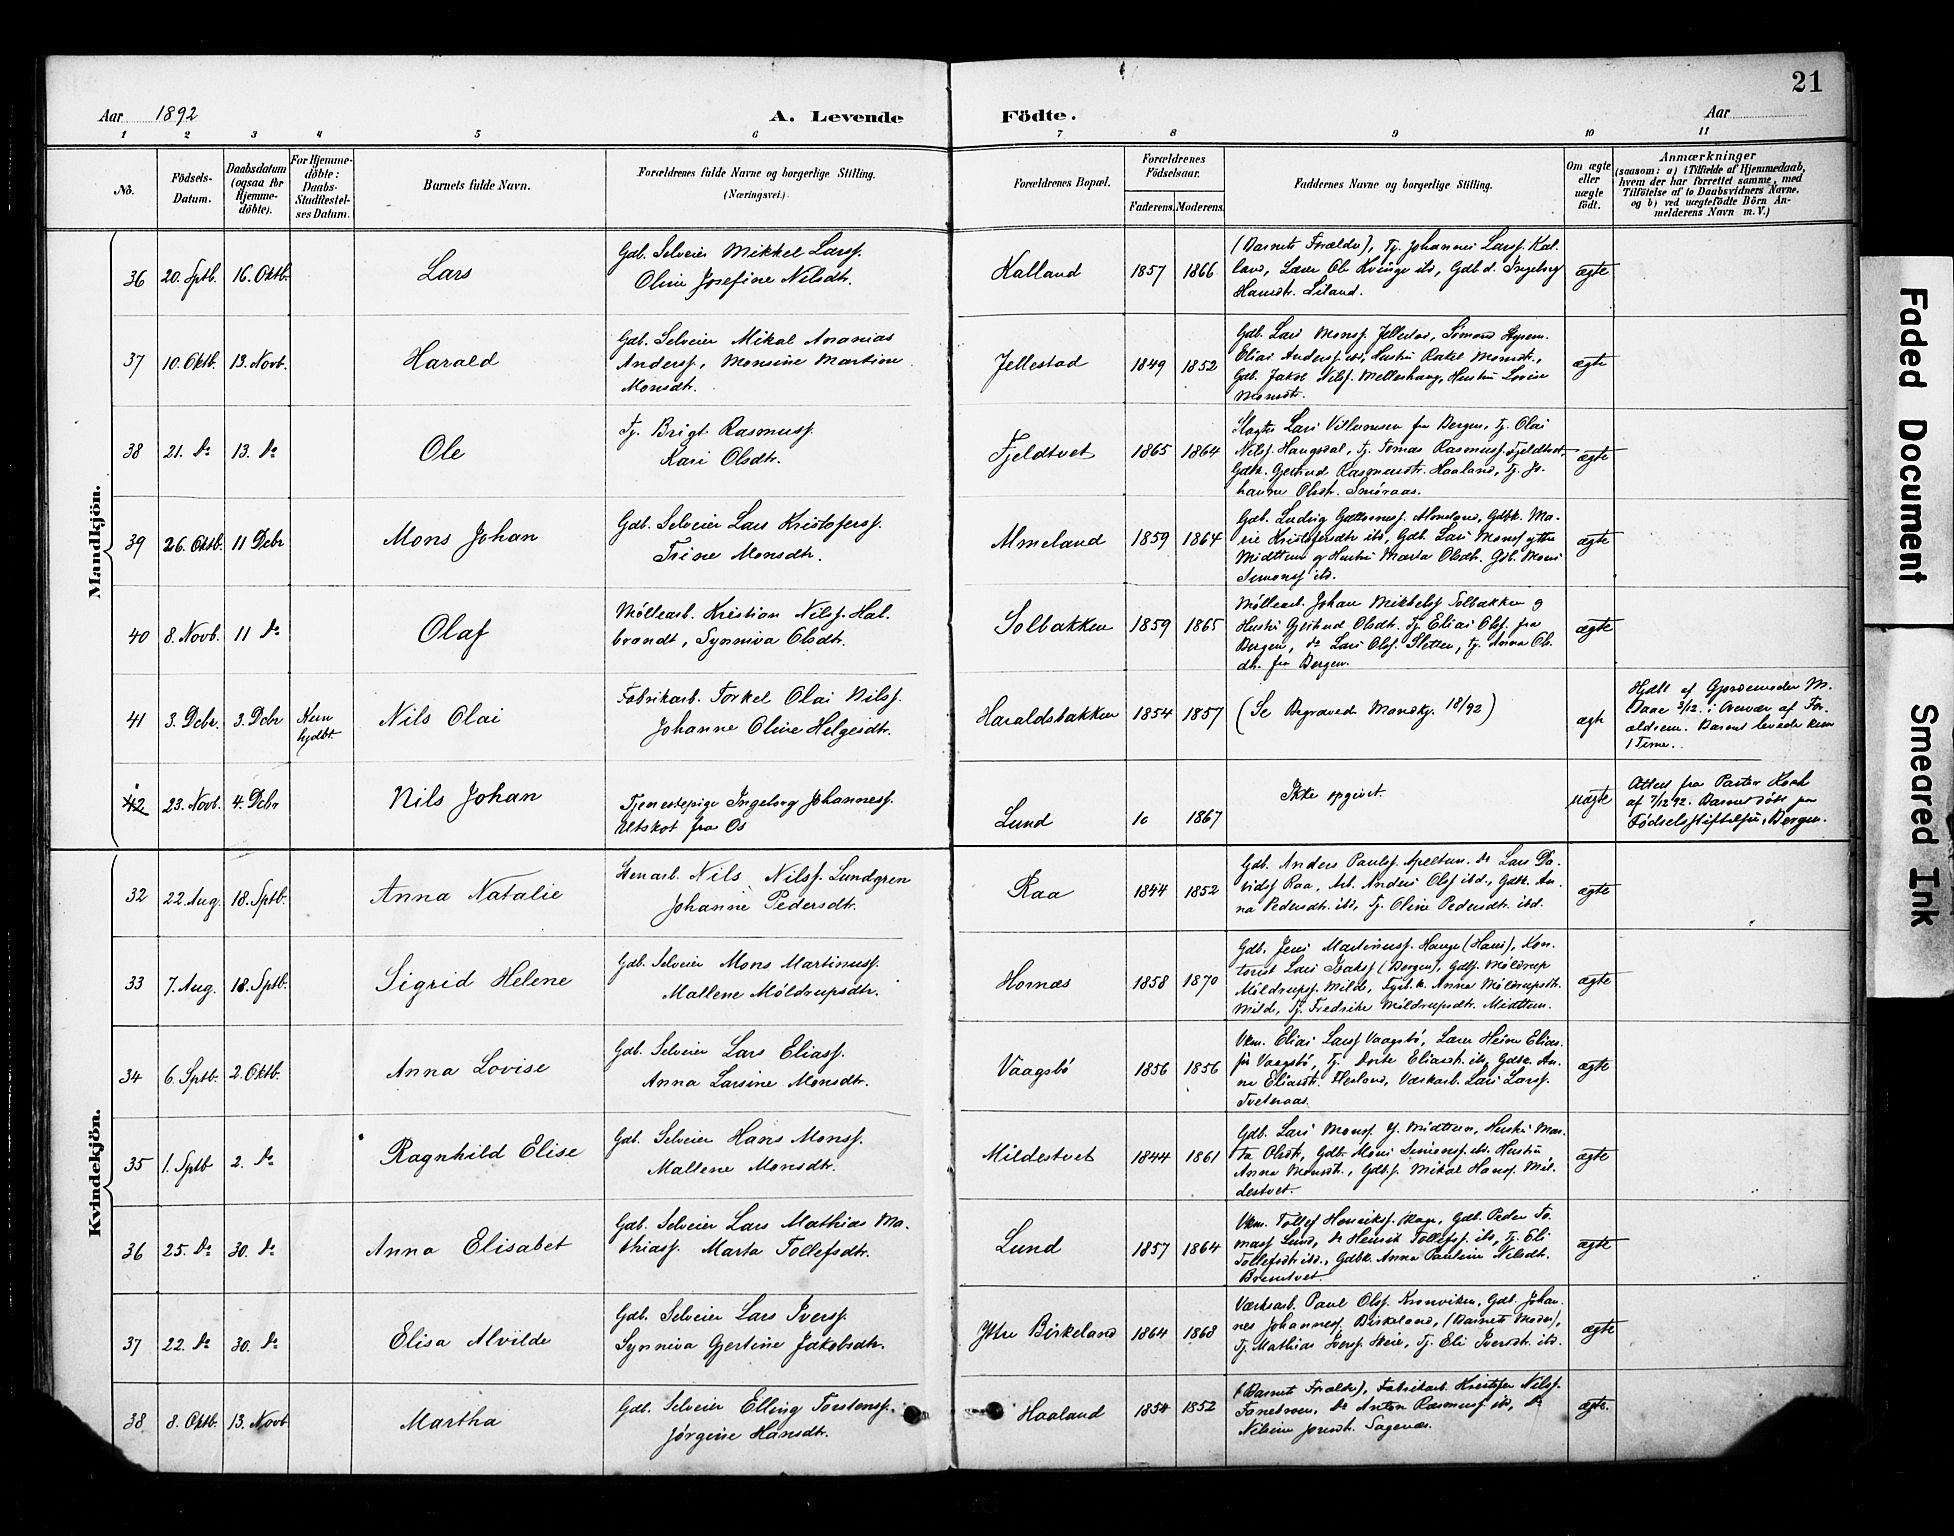 21
Aar 1892
A. Levende Födte.
Aar
1 2 3 4 5 6 7 8 9 10 11
No.
Födsels-Datum.
Daabsdatum (ogsaa for Hjemme-döbte).
For Hjemme-döbte: Daabs-Stadfestel-ses Datum.
Barnets fulde Navn.
Forældrenes fulde Navne og borgerlige Stilling.
(Næringsvei.)
Forældrenes Bopæl.
Forældrenes Födselsaar.
Faderens. Moderens.
Faddernes Navne og borgerlige Stilling.
Om ægte eller uægte födt.
Anmærkninger
(saasom: a) i Tilfælde af Hjemmedaab,
hvem der har forrettet samme, med
Tilföielse af to Daabsvidners Navne,
og b) ved uægtefödte Börn An-
melderens Navn m. V.)
Mandkjön.
36 20. Sptb. 16. Oktb. Lars
Gdb. Selveier Mikkel Larss.
Oline Josefine Nilsdtr.
Kalland 1857 1866
(Barnets Forældre), Tj. Johannes Larss. Kal-
land, Lærer Ole Kvinge ibd, Gdb.d. Ingeborg
Hansdtr. Liland.
ægte
37 10. Oktb. 13. Novb. Harald
Gdb. Selveier Mikal Ananias
Anderss, Monsine Martine
Monsdtr.
Jellestad 1849 1852
Gdb. Lars Monss. Jellestad,
Elias Anderss. ibd, Hustru Rakel Monsdtr.,
Gdb. Jakob Nilss. Melleshaug, Hustru Lovise
Monsdtr.
ægte
38 21. Do 13. Do Ole
Tj. Brigt Rasmuss.
Kari Olsdtr.
Fjeldtvet 1865 1864
Slagter Lars Villumsen fra Bergen, Tj. Olai
Nilss. Haugsdal, Tj. Tomas Rasmuss. Fjeldtvet,
Gdbk. Gjertrud Rasmusdtr. Haaland, Tj. Jo-
hanne Olsdtr. Smøraas.
ægte
39 26. Oktb. 11 Debr Mons Johan
Gdb. Selveier Lars Kristoferss.
Trine Monsdtr.
Almeland 1859 1864
Gdb. Ludvig Almeland, Gdbk. Ma-
rie Kristofersdtr ibd, Gdb. Lars Monss ytre
Midttun og Hustru Marta Olsdtr. Gdb. Mons
Simonss ibd.
ægte
40 8. Novb. 11 Do Olaf
Møllearb. Kristian Nilss. Hal-
brandt, Synniva Olsdtr.
Solbakken 1859 1865
Møllearb. Johan Mikkelss Solbakken og
Hustru Gjertrud Olsdtr. Tj. Elias Olss. fra
Bergen, Do Lars Olss. Sletten, Tj. Anna Ols-
dtr. fra Bergen.
ægte
41 3. Debr. 3. Debr Kun hjdbt. Nils Olai
Fabrikarb. Torkel Olai Nilss.
Johanne Olive Helgesdtr.
Haraldsbakken 1854 1857
(Se Begravede Mandkj. 18/92)
ægte
Hjdbt af Gjordemoder M.
Daae 3/12. i Overvær af For-
ældrene. Barnet levede kun
1 Time.
42 23. Novb. 4. Debr Nils Johan
Tjenestepige Ingeborg Johanness.
Utskot fra Os
Lund 1867
Ikke opgivet.
uægte
Attest fra Pastor
af 7/12 92. Barnet døbt paa
Födselsstiftelsen, Bergen.
Kvindekjön.
32 22. Aug. 18. Sptb. Anna Natalie
Stenarb. Nils Nilss. Lundgren
Johanne Pedersdtr.
Raa 1844 1852
Gdb. Anders Paulss. Apeltun. Do Lars Da-
vidss Raa, Arb. Anders Olss ibd., Gdbk. An-
na Pedersdtr. ibd, Tj. Oline Pedersdtr. ibd.
ægte
33 7. Aug. 18. Sptb. Sigrid Helene
Gdb. Selveier Mons Martinuss.
Mallene Möldrupsdtr.
Hornæs 1858 1870
Gdb. Jens Martinuss. Hauge (Haus), Kon-
torist Lars Isakss (Bergen), Gdbs. Möldrup
Möldrupss. Milde, Anna Möldrupsdtr.
Milde, Tj. Fredrike Möldrupsdtr. Midttun.
ægte
34 6. Sptb. 2. Oktb. Anna Lovise
Gdb. Selveier Lars Eliass.
Anna Larsine Monsdtr.
Vaagsbö 1856 1856
Elias Larss Vaagsbö, Lærer Elias-
Vaagsbö, Tj. Dorte Eliasdtr. ibd, Gdbk. An-
na Eliasdtr. Hesland, Værkarb. Lars Larss.
Tveteraas.
ægte
35 1. Sptb 2. Do Ragnhild Elise
Gdb. Selveier Hans Monss.
Mallene Monsdtr.
Mildestvet 1844 1861
Gdb. Lars Monss Y. Midttun, Hustru Mar-
ta Olsdtr, Gdb. Mons Simonss. ibd. Hustru
Anna Monsdtr., Gdbs. Mikal Hanss. Mil-
destvet.
ægte
36 25. Do 30. Do Anna Elisabet
Gdb. Selveier Lars Mathias Ma-
thiass. Marta Tollefsdtr.
Lund 1857 1864
Tollef Henrikss. Skage, Gdb. Peder To-
mass Lund, Do Henrik Tollefss. ibd, Tj. Eli
Tollefsdtr ibd., Gdbk. Anna Pauline Nilsdtr.
ægte
37 22. Do 30. Do Elisa Alvilde
Gdb. Selveier Lars Iverss.
Synniva Gjertine Jakobsdtr.
Ytre Birkeland 1864 1868
Værksarb. Paul Olss. Kronviken, Gdb. Johan-
nes Johanness. Birkeland, (Barnets Moder),
Tj. Mathias Iverss. Steie, Tj. Eli Iversdtr. ibd.
ægte
38 8. Oktb. 13. Novb Martha
Gdb. Selveier Elling Torstenss.
Jørgine Hansdtr.
Haaland 1854 1852
(Barnets Forældre), Fabrikarb. Kristofer Nilss.
Do Anton Rasmuss ibd, Do
Nilsine Jonsdtr. Sagenæs.
ægte.
Faded Document
Smeared Ink